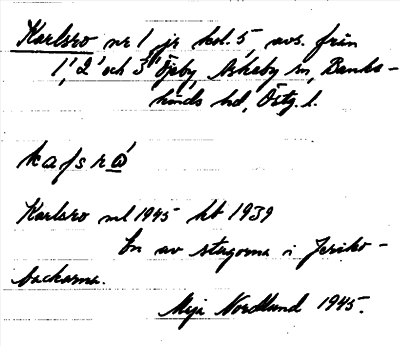 Karlsro nr 1, jr kol. 5, avs. från
1', 2' och 3' Öjeby, Askeby sn, Banke-
kinds hd, Östg. l.
kaʃsrὼ
Karlsro ml 1945 kt 1939
En av stugorna i Jeriko-
backarna.
Nordlund 1945.